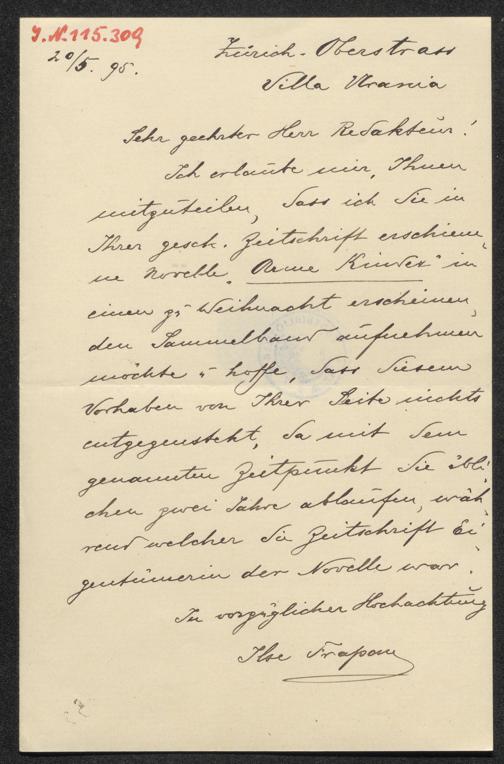 J.N.115.309
20/5. 95.
Zürich-Oberstrass
Villa Urania
Sehr geehrter Herr Redakteur!
Ich erlaube mir, Ihnen
mitzuteilen, dass ich die in
Ihrer gesch. Zeitschrift erschiene-
ne Novelle „Arme Kinder" in
einen zu Weihnacht erscheinen-
den Sammelband aufnehmen
möchte u hoffe, dass diesem
Vorhaben von Ihrer Seite nichts
entgegensteht, da mit dem
genannten Zeitpunkt die übli-
chen zwei Jahre ablaufen, wäh-
rend welcher die Zeitschrift Ei-
gentümerin der Novelle war.
In vorzüglicher Hochachtung
Ilse Frapan